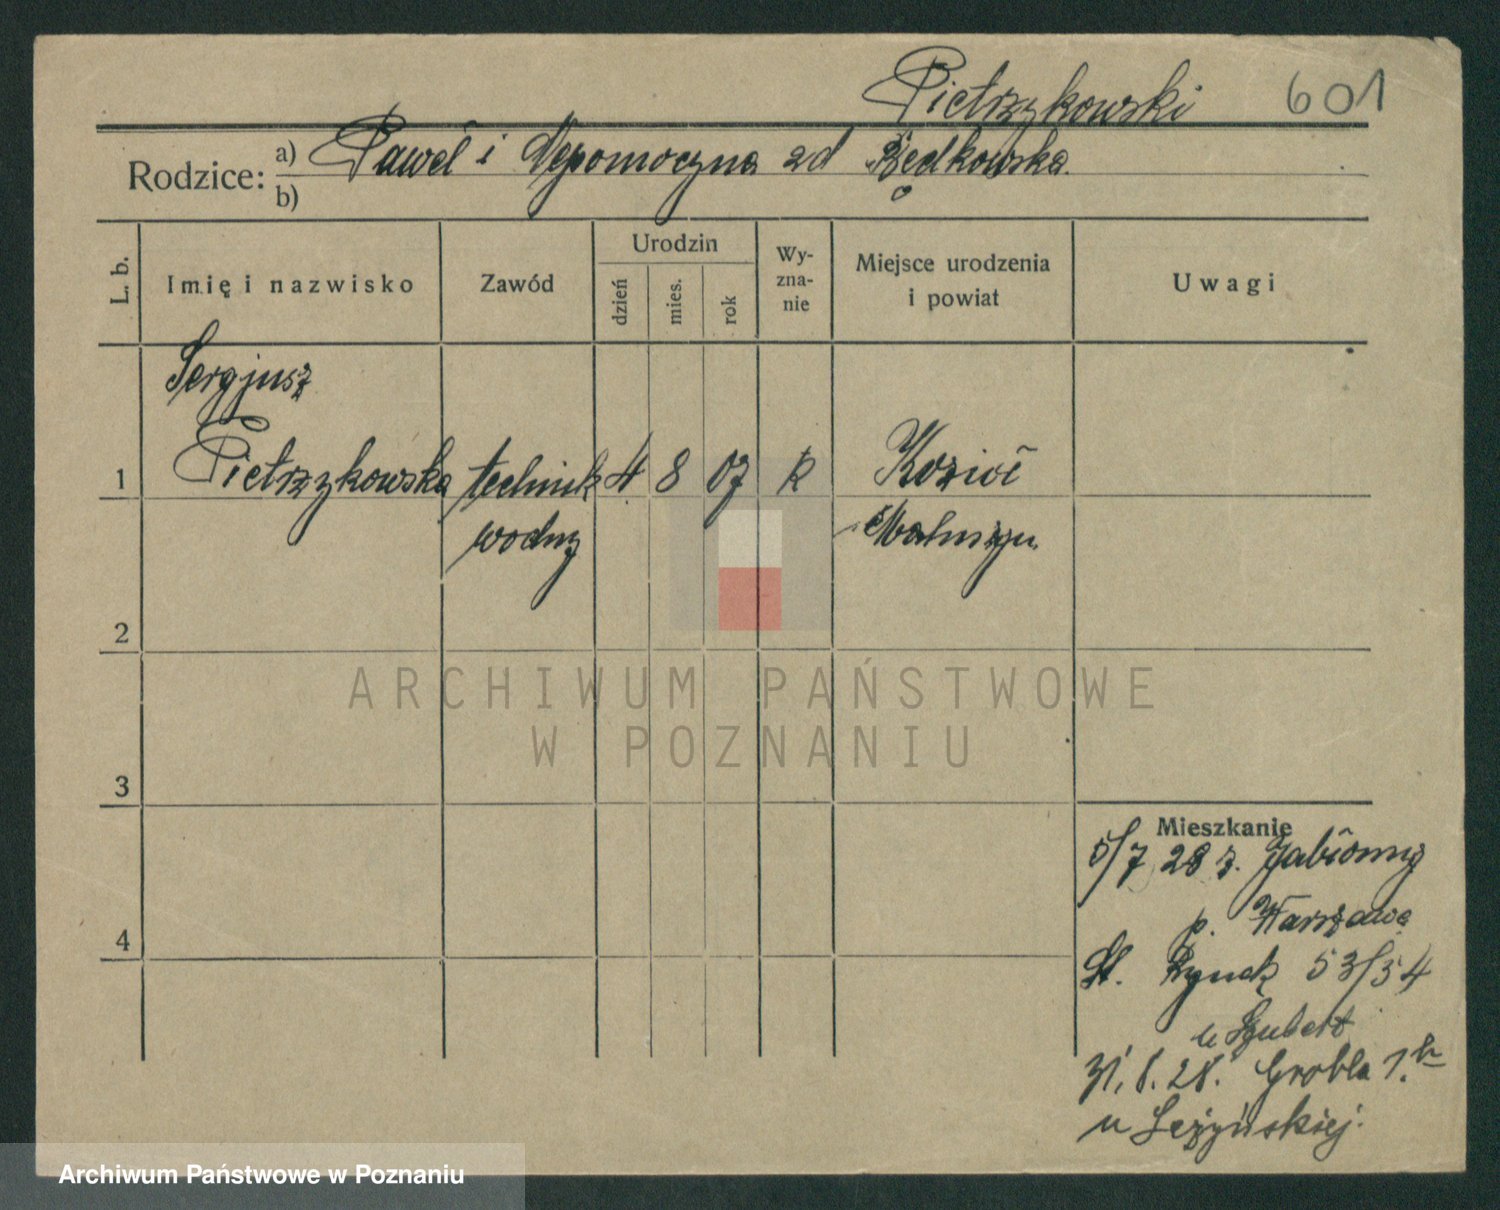 Pietrzykowski 601
Rodzice: a) Paweł i Nepomoczyna zd Będkowska.
b)
L. b.
Imię i nazwisko
Zawód
Urodzin
dzień
mies.
rok
Wy-
zna-
nie
Miejsce urodzenia
i powiat
Uwagi
Sergjusz
1 Pietrzykowska technik 4 8 07 R Kozioł
wodny
2
3
4
Mieszkanie
5/7 28 z. Jabłonny
p. Warszawę
St. Rynek 53/54
u Szubert
31.8.28. Grobla 1.
u Leżyńskiej.
ARCHIWUM PAŃSTWOWE
W POZNANIU
Archiwum Państwowe w Poznaniu